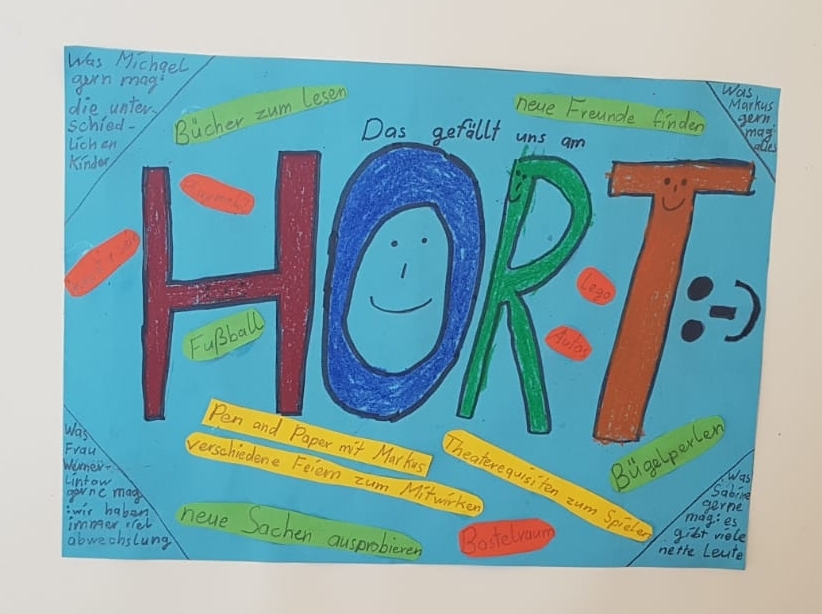 Was Michael
gern mag:
die unter-
schied-
lichen
Kinder
Bücher zum Lesen
neue Freunde finden
Was
Markus
gern
mag:
alles
Das gefällt uns am
HORT
Lego
Autos
Fußball
Pen and Paper mit Markus
verschiedene Feiern zum Mitwirken
Theaterequisiten zum Spielen
Bügelperlen
neue Sachen ausprobieren
Bastelraum
Was
Frau
Werner-
Lintow
gerne mag
:wir haben
immer viel
abwechslung
Was
Sabine
gerne
mag: es
gibt viele
nette Leute